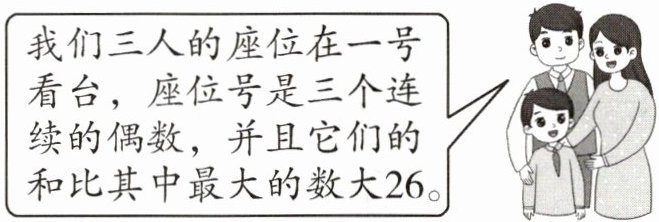 我们三人的座位在一号
看台，座位号是三个连
续的偶数，并且它们的
和比其中最大的数大26。